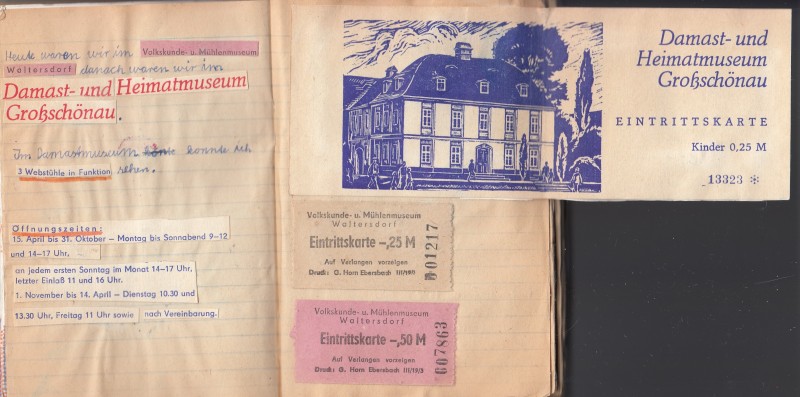 Heute waren wir im Volkskunde- u. Mühlenmuseum
Waltersdorf danach waren wir im
Damast- und Heimatmuseum
Großschönau.
Im Damastmuseum konnte ich
3 Webstühle in Funktion sehen.
Öffnungszeiten:
15. April bis 31. Oktober – Montag bis Sonnabend 9–12
und 14–17 Uhr,
an jedem ersten Sonntag im Monat 14–17 Uhr,
letzter Einlaß 11 und 16 Uhr.
1. November bis 14. April – Dienstag 10.30 und
13.30 Uhr, Freitag 11 Uhr sowie nach Vereinbarung.
Damast- und
Heimatmuseum
Großschönau
EINTRITTSKARTE
Kinder 0,25 M
13323 *
Volkskunde- u. Mühlenmuseum
Waltersdorf
Eintrittskarte –,25 M
Auf Verlangen vorzeigen
Druck: G. Horn Ebersbach III/19/3
001217
Volkskunde- u. Mühlenmuseum
Waltersdorf
Eintrittskarte –,50 M
Auf Verlangen vorzeigen
Druck: G. Horn Ebersbach III/19/3
007863